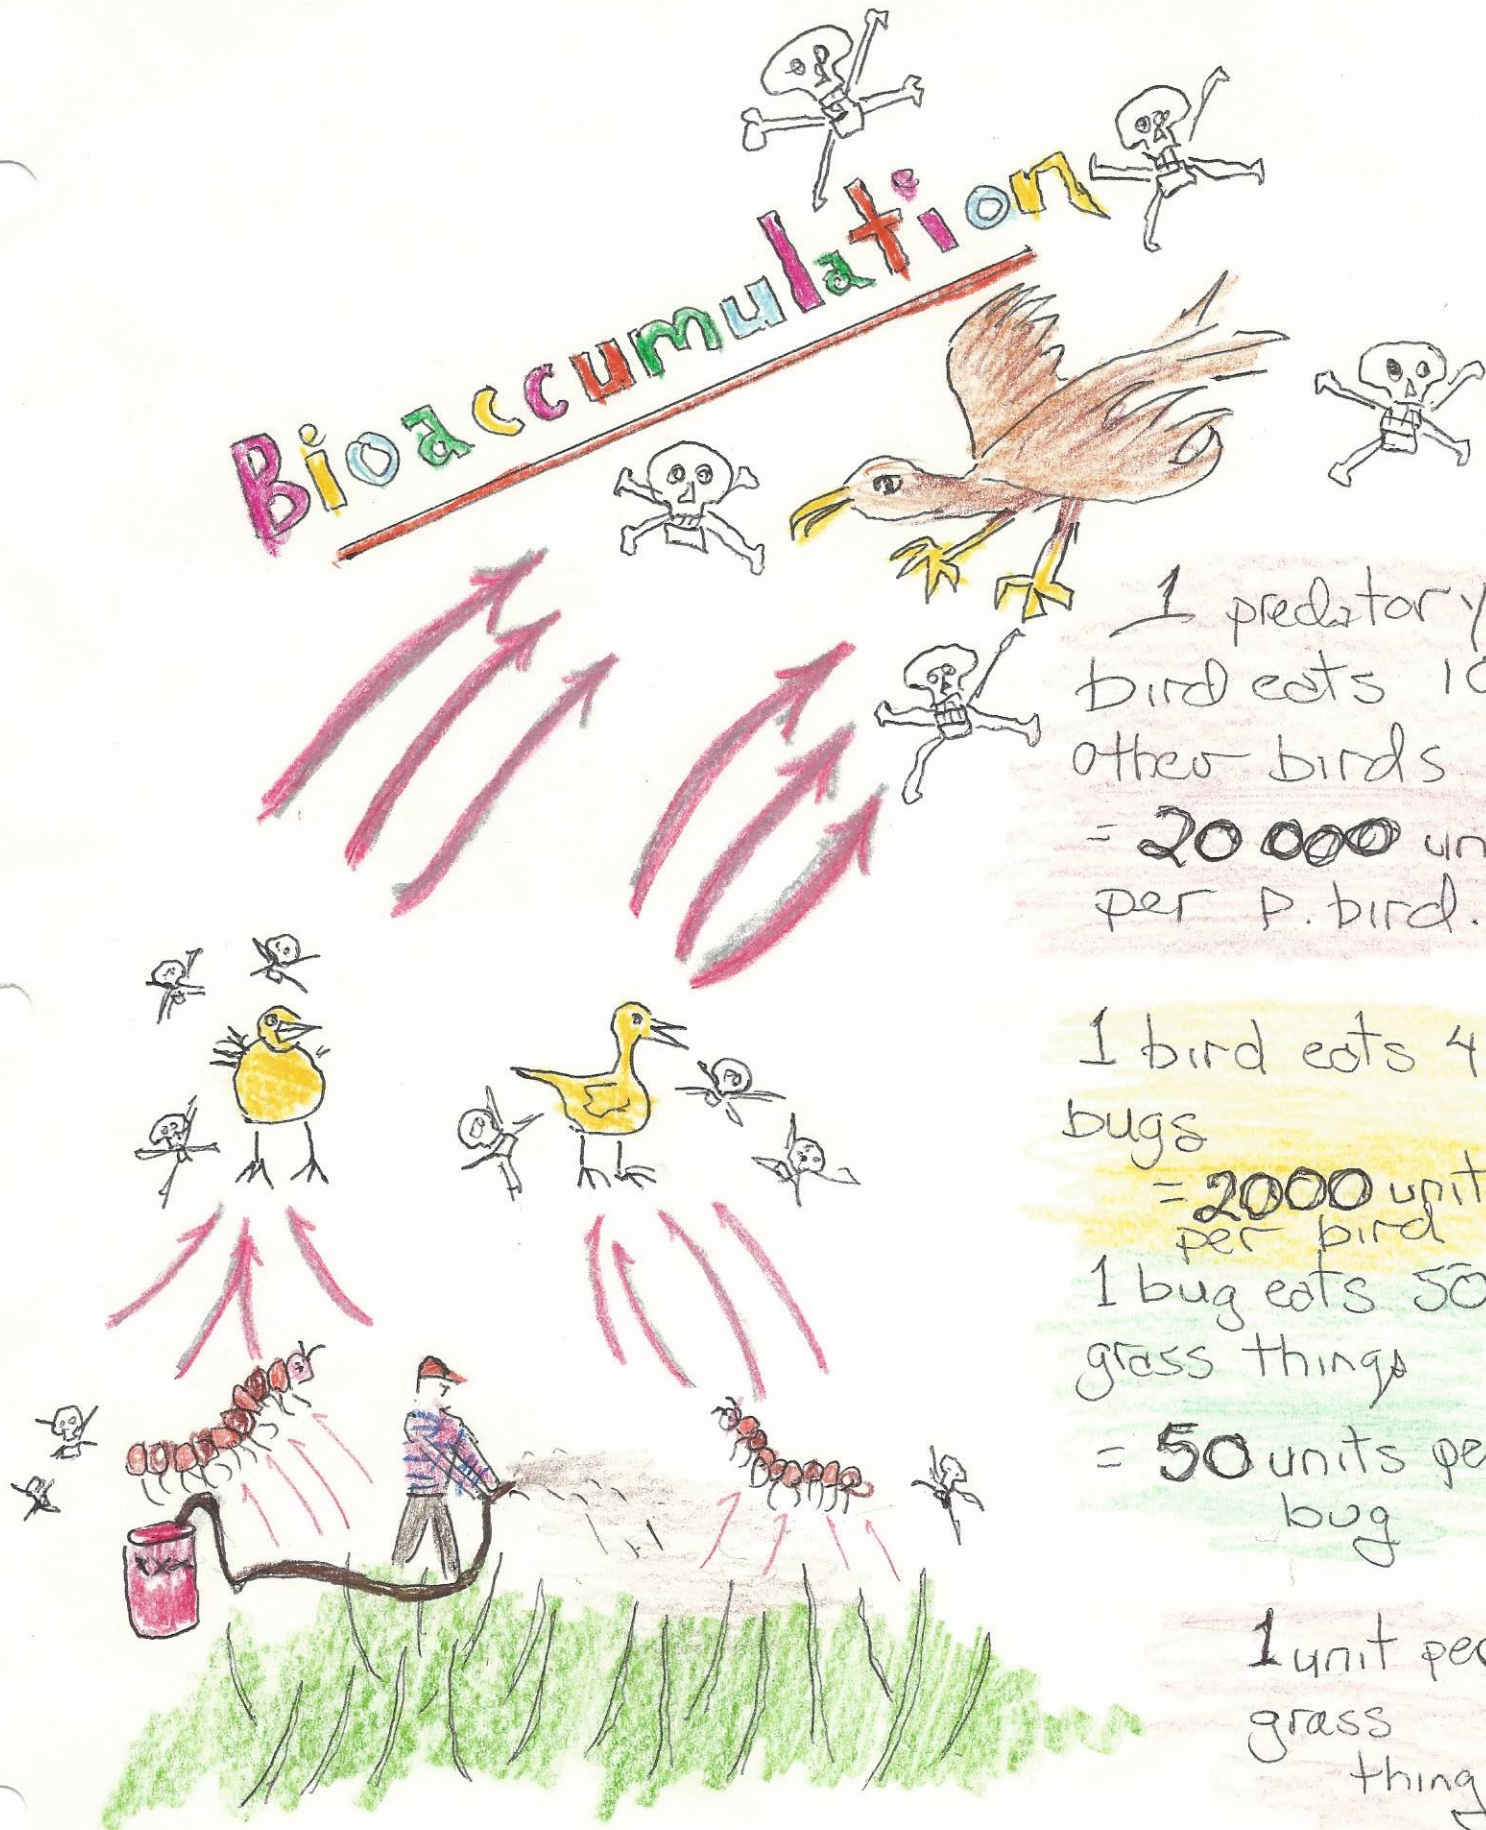 Bioaccumulation
1 predatory
bird eats 10
other birds
= 20 000 un
per p. bird.
1 bird eats 4
bugs
= 2000 unit
per bird
1 bug eats 50
grass things
= 50 units pe
bug
1 unit per
grass
thing
XXX